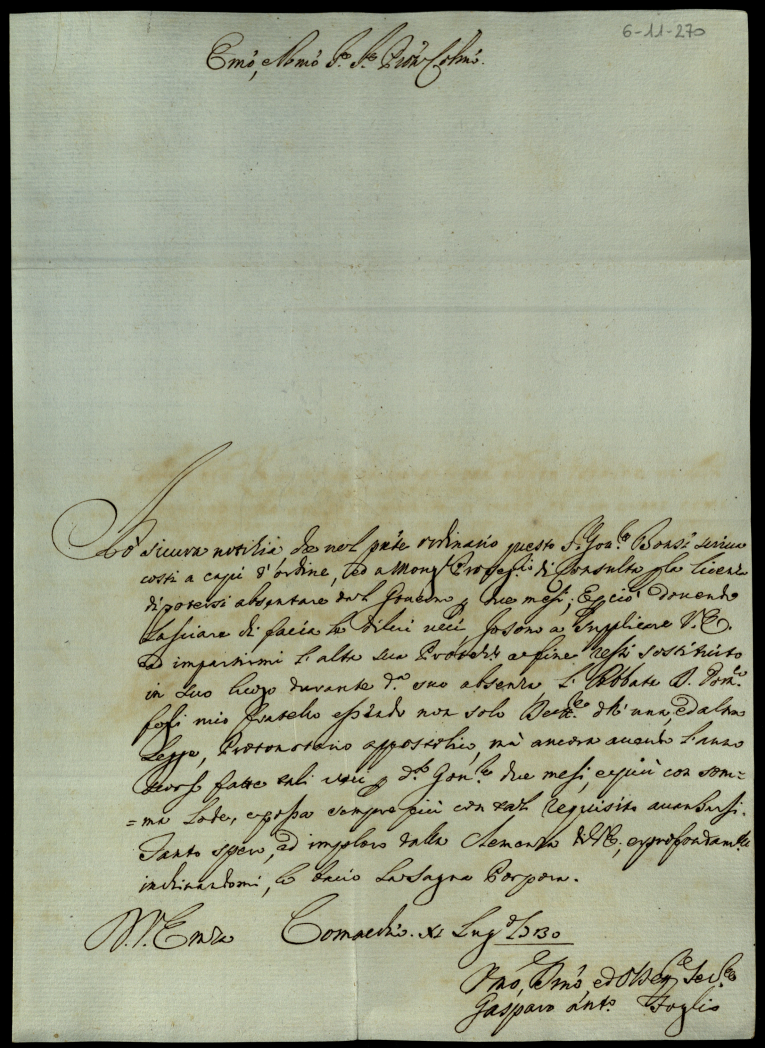 6-11-270
Emo, e Rmo Sr. Sr. Pron Colmo.
Hò sicura notitia che nel pnte ordinario questo Sr. Gou.re Bonsi scriua
costi a capi d'ordine, ed a Monsr di Consulta p la licenza
di potersi absentare dal Gouerno p due mesi; E perciò douendo
Lasciare di facia le di lui ueci, Jo sono a supplicare V.E.
ad impartirmi l'alta sua Protetne affine resti sostituito
in suo luogo durante da. sua absenza, L'Abbate D. Domco
mio fratello essendo non solo Dottre dell'una, ed altra
Legge, Protonotario appostolico, mà ancora auendo l'anno
scorso fatte tali ueci p do. Gou.re due mesi, e più con som=
=ma Lode, e possa sempre più con tal requisito auanzarsi.
Tanto spero, ed imploro dalla Clemenza dell'E.V., e profondamte
inchinandomi, le bacio La Sagra Porpora.
D. V. Emza Comacchio. XI Lugo 1730
Vmo, Dmo, ed Obbligmo Serure
Gasparo Anto. Foglio